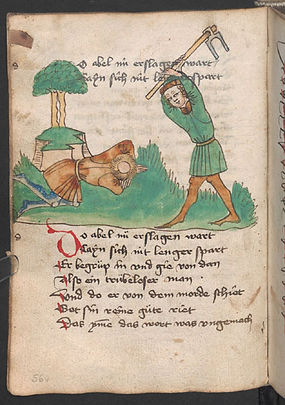 o abel nū erslagen wart
Cayn sich nit lenger spart
Do abel nū erslagen wart
Cayn sich nit lenger spart
Er begrüp in vnd gie von dan
Also ein trúbeloser man
Vnd do er von dem morde schiet
Got sin reine gúte riet
Daz yme das wort was vngemach